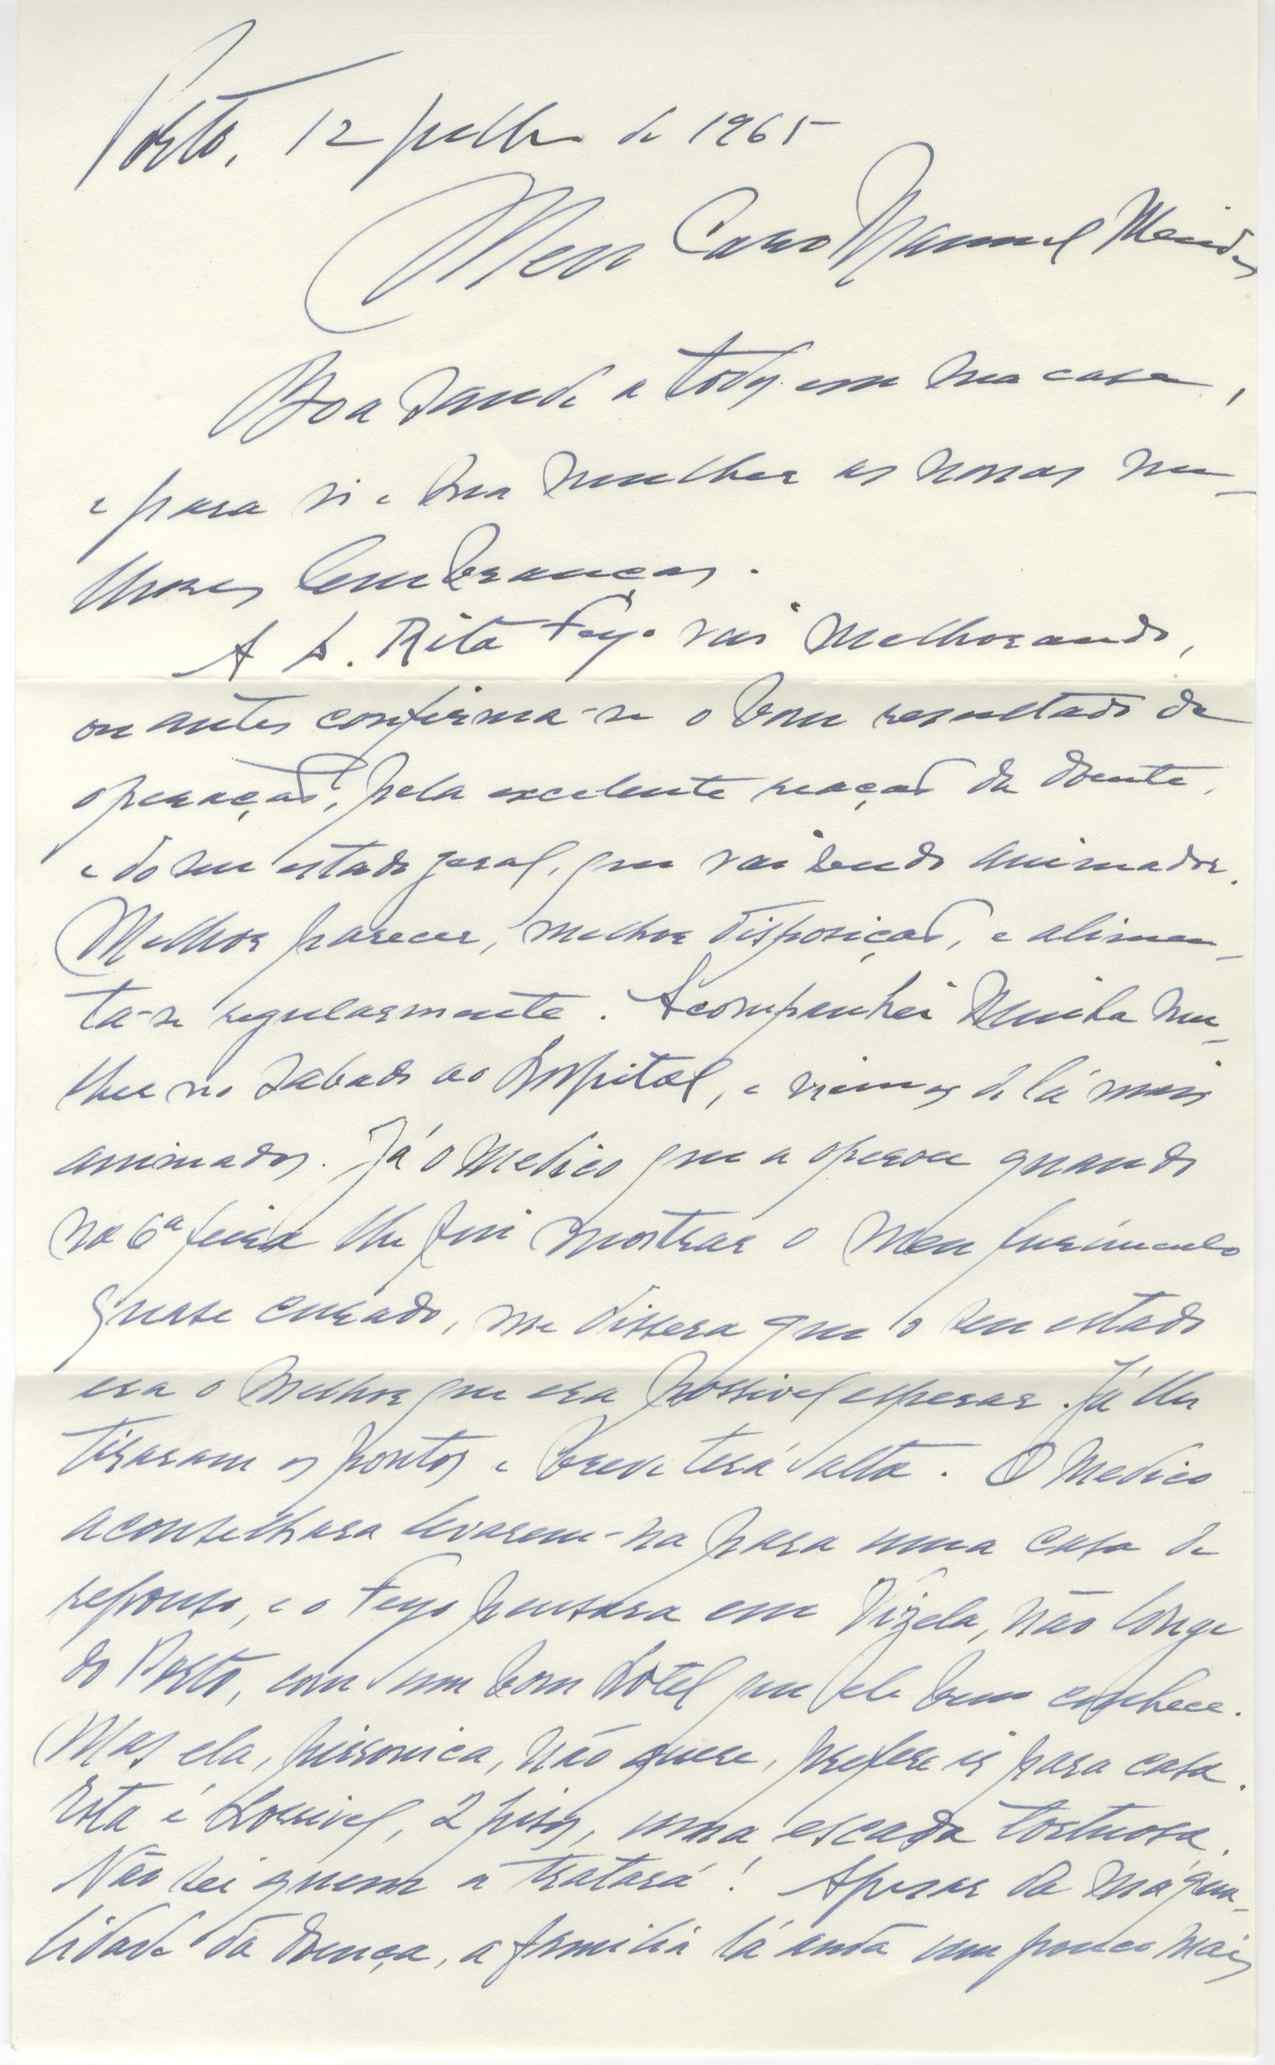 Porto, 12 julho de 1965
Meu Caro Manuel Mendes
Boa saude a todos em sua casa,
e para si e sua mulher as nossas me-
lhores lembranças.
A D. Rita Feyo vai melhorando,
ou antes confirma-se o bom resultado da
operação, pela excelente reação da doente,
e do seu estado geral, que vai sendo animador.
Melhor parecer, melhor disposição, e alimen-
ta-se regularmente. Acompanhei minha mu-
lher no sabado ao hospital, e viemos de lá mais
animados. Já o medico que a operou quando
na 6ª feira lhe fui mostrar o meu furúnculo
quase curado, me dissera que o seu estado
era o melhor que era possivel esperar. Já lhe
tiraram os pontos e breve terá alta. O medico
aconselhara levarem-na para uma casa de
repouso, e o Feyo pensara em Vizela, não longe
do Porto, com um bom hotel que ele bem conhece.
Mas ela, pirronica, não quere, prefere ir para casa.
Esta é horrivel, 2 pisos, uma escada tortuosa.
Não sei quem a tratará! Apesar da má qua-
lidade da doença, a familia lá anda um pouco mais